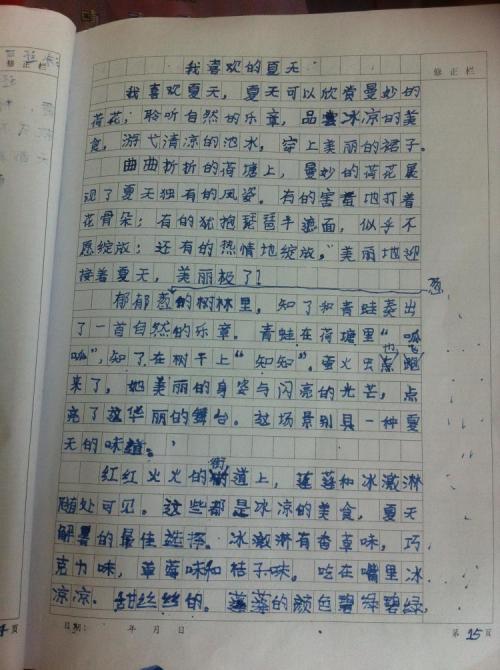 修正栏
修正栏
我喜欢的夏天
我喜欢夏天，夏天可以欣赏曼妙的
荷花，聆听自然的乐章，品尝冰凉的美
食，游弋清凉的池水，穿上美丽的裙子。
曲曲折折的荷塘上，曼妙的荷花展
现了夏天独有的风姿。有的害羞地打着
花骨朵；有的犹抱琵琶半遮面，似乎不
愿绽放；还有的热情地绽放，美丽地迎
接着夏天，美丽极了！
郁郁葱葱的树林里，知了和青蛙奏出
了一首自然的乐章。青蛙在荷塘里“呱
呱”，知了在树干上“知知”。萤火虫也飞
来了，她美丽的身姿与闪亮的光芒，点
亮了这华丽的舞台。这场景别具一种夏
天的味道。
红红火火的街道上，莲蓬和冰激淋
随处可见。这些都是冰凉的美食，夏天
解暑的最佳选择。冰激淋有香草味，巧
克力味，草莓味和桔子味。吃在嘴里冰
凉凉，甜丝丝的。莲蓬的颜色碧绿碧绿，
日期： 年 月 日
第15页
页